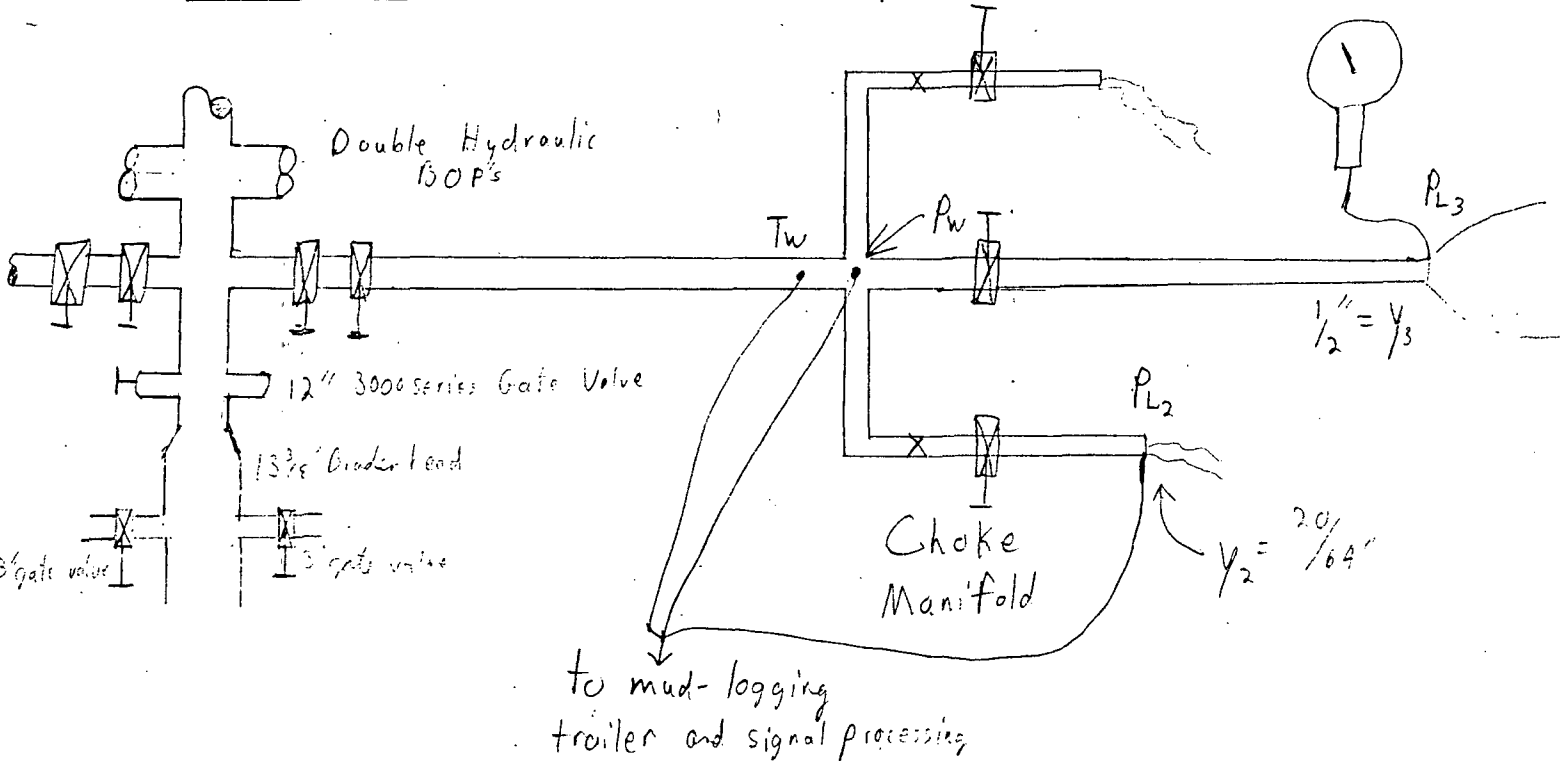 Double Hydraulic
BOP's
Tw
Pw
PL3
1/2" = y3
12" 3000 series Gate Valve
PL2
13 3/8"
3" gate valve
3" gate valve
Choke
Manifold
y2 = 20/64"
to mud-logging
trailer and signal processing